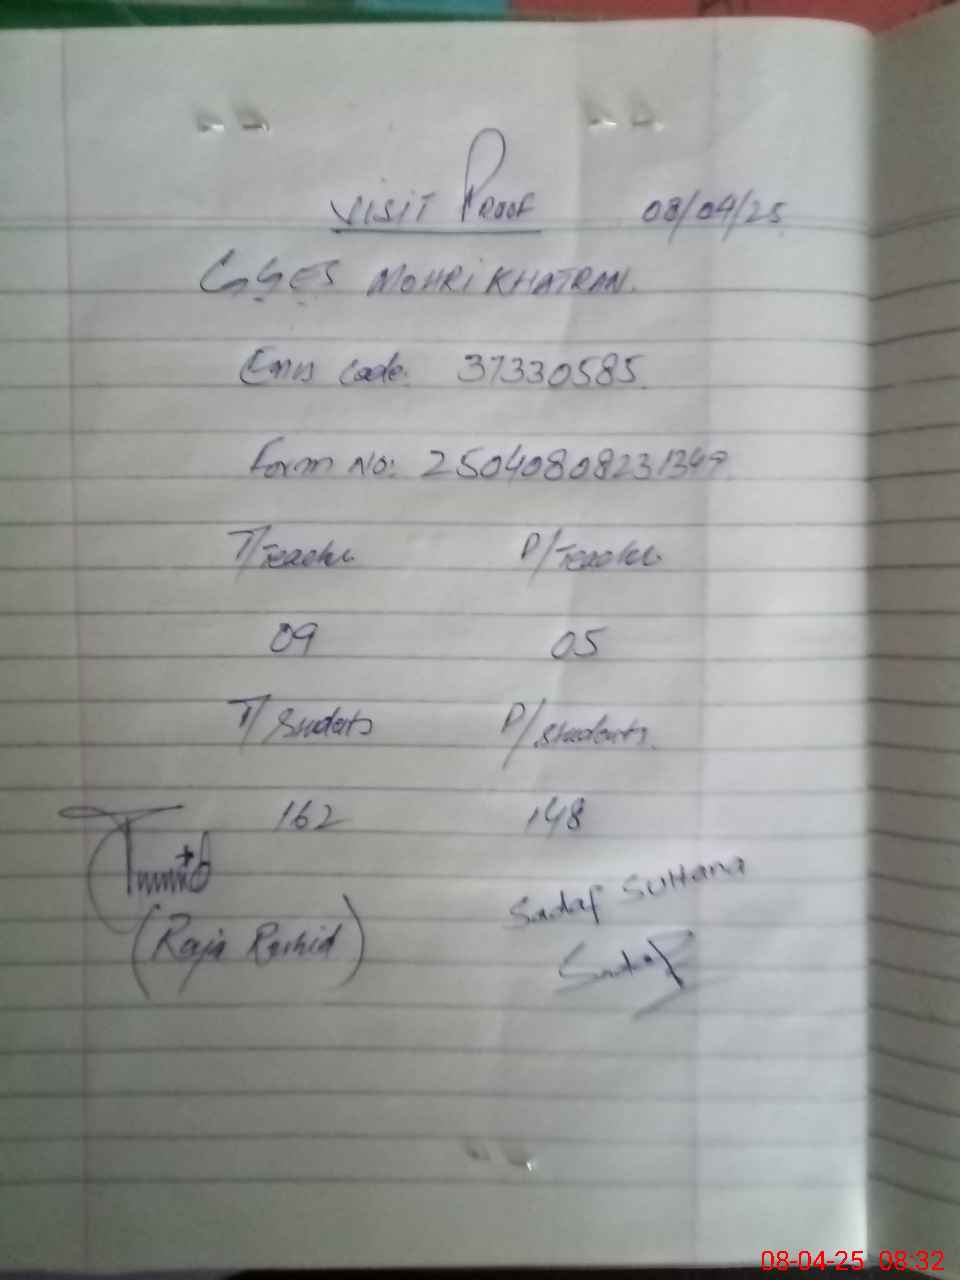 VISIT PROOF 08/04/25
GGES MOHRI KHATRAN.
Emis Code: 37330585
Form No: 25040808231349
T/Teacher P/Teacher
09 05
T/Students P/Students
162 148
Sadaf Sultana
(Raja Rashid)
Sadaf
08-04-25 08:32